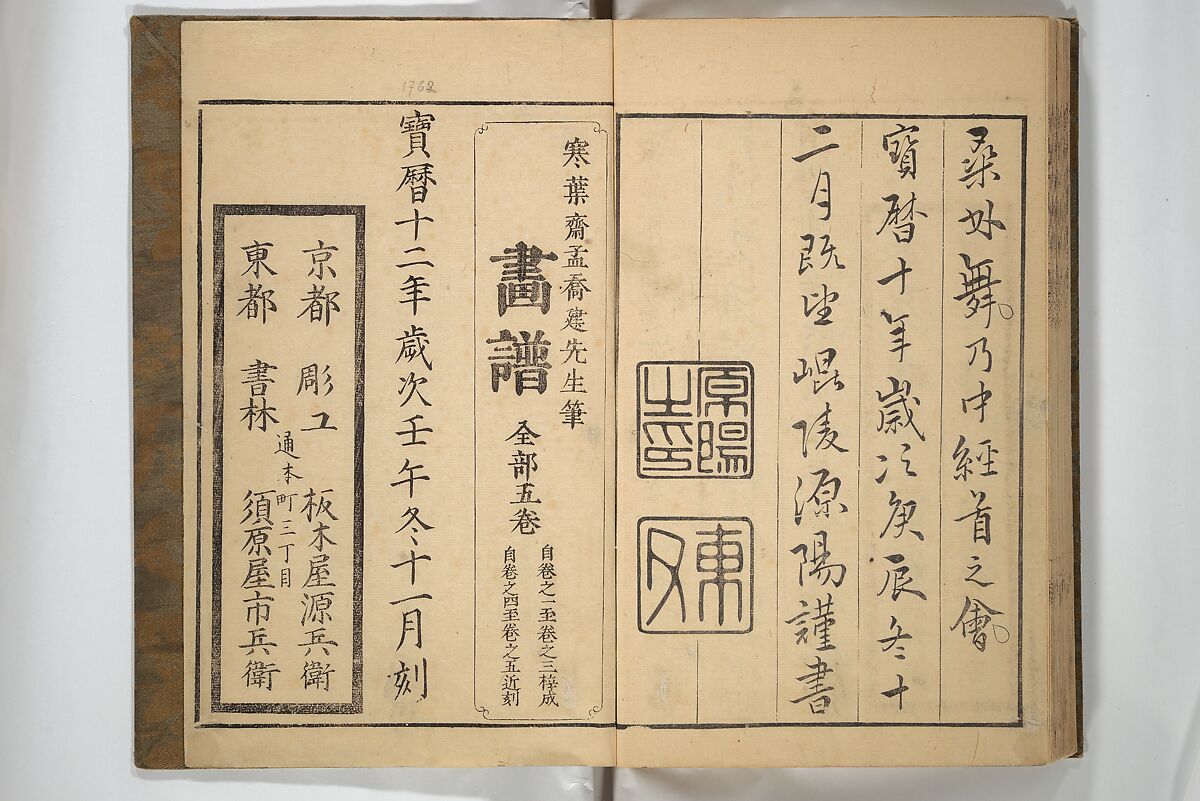 桑林舞乃中經首之會
寶暦十年歳次庚辰冬十
二月既望崐陵源陽謹書
原陽之印
寒葉齋孟喬建先生筆
畫譜全部五卷
自卷之一至卷之三梓成
自卷之四至卷之五近刻
寶暦十二年歳次壬午冬十一月刻
京都 彫工 板木屋源兵衛
通本町三丁目
東都 書林 須原屋市兵衛
1762